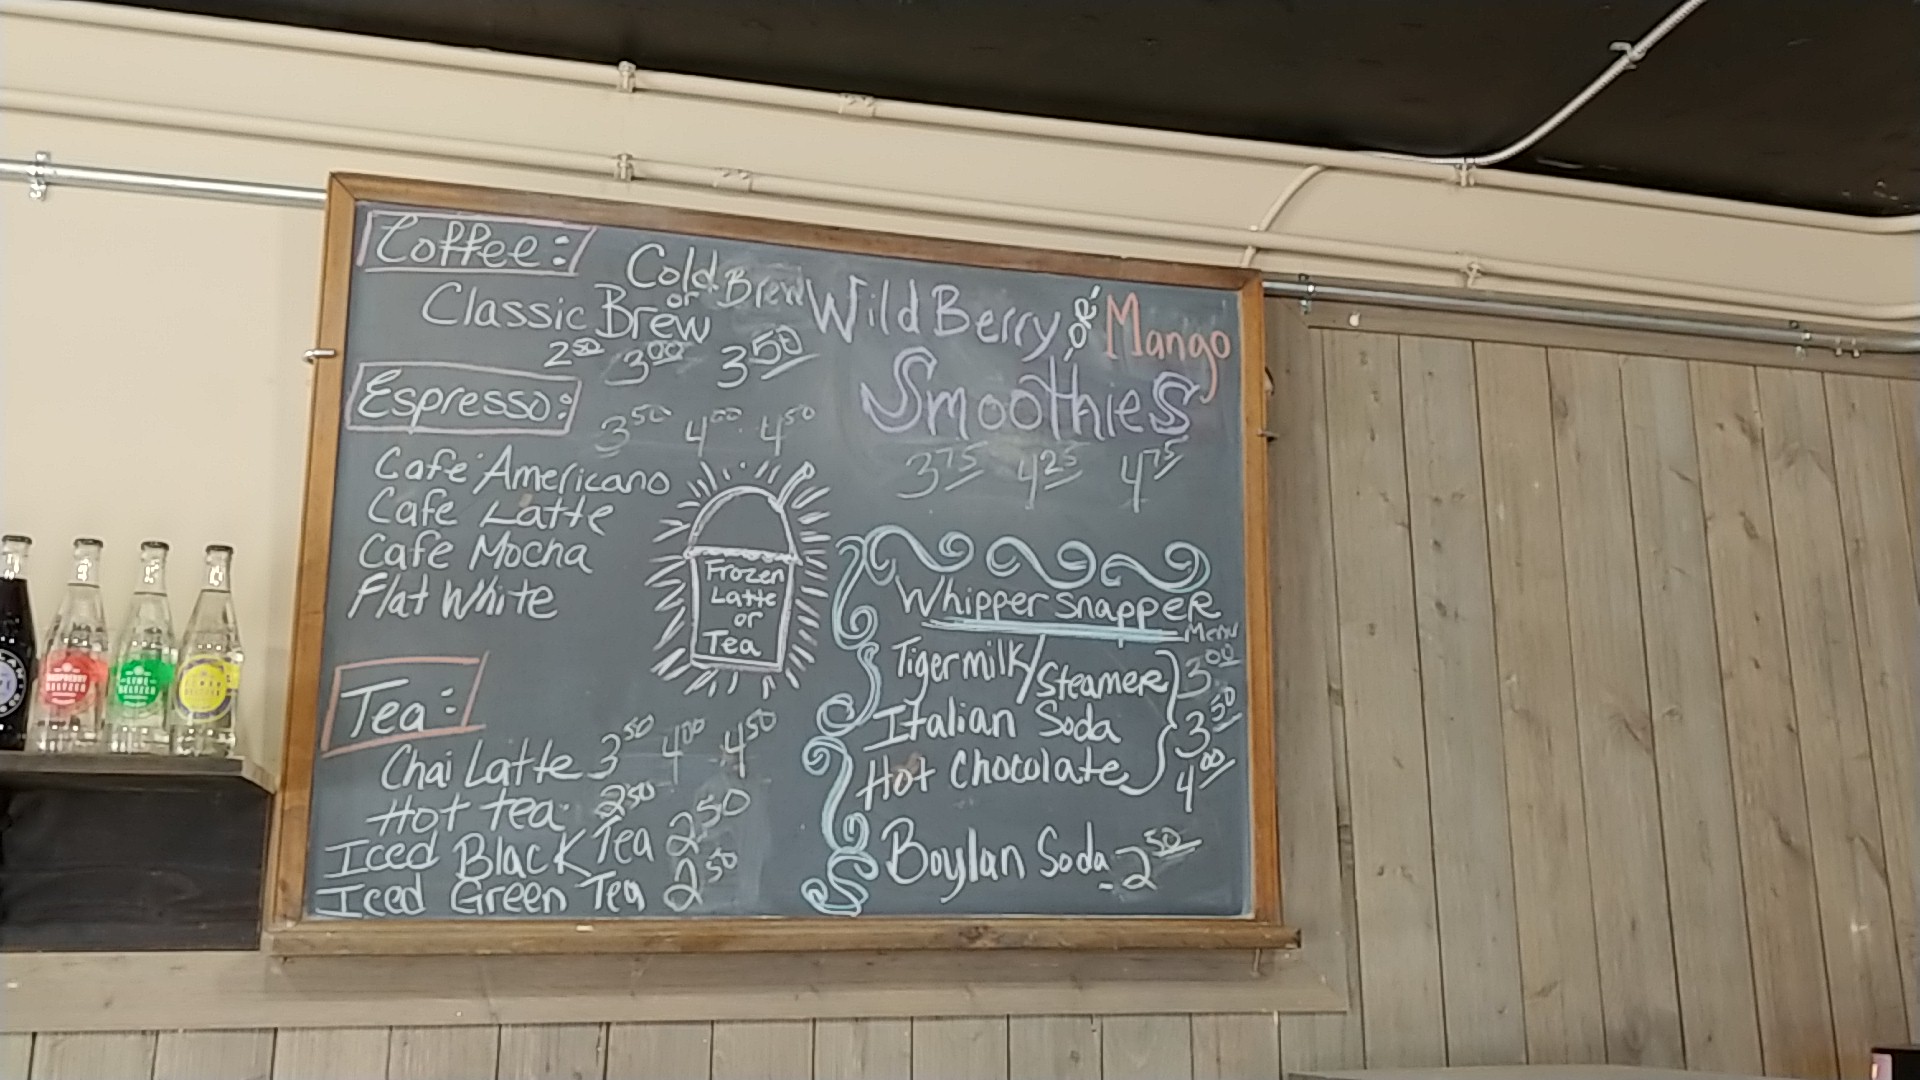 Coffee:
Cold Brew
or
Classic Brew
2.50 3.00 3.50
Espresso:
3.50 4.00 4.50
Cafe Americano
Cafe Latte
Cafe Mocha
Flat White
Frozen
Latte
or
Tea
Tea:
Chai Latte 3.50 4.00 4.50
Hot tea 2.50
Iced Black Tea 2.50
Iced Green Tea 2.50
Wild Berry or Mango
Smoothies
3.75 4.25 4.75
Whipper snapper
Menu
Tigermilk/Steamer 3.00
Italian Soda 3.50
Hot Chocolate 4.00
Boylan Soda - 2.50
RASPBERRY
SELTZER
LIME
SELTZER